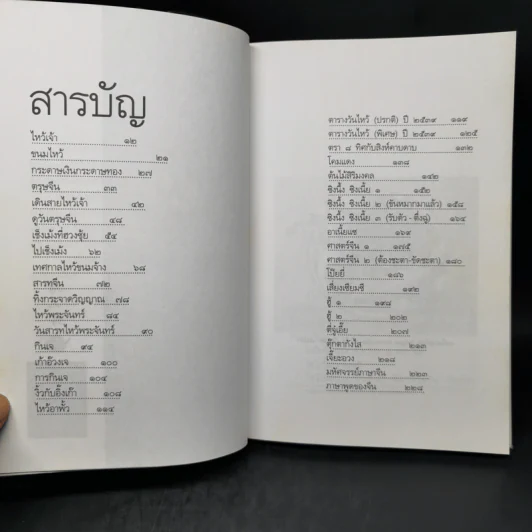 สารบัญ
ไหว้เจ้า ๑๒
ขนมไหว้ ๒๑
กระดาษเงินกระดาษทอง ๒๗
ตรุษจีน ๓๓
เดินสายไหว้เจ้า ๔๒
ดูวันตรุษจีน ๔๘
เช็งเม้งที่ฮวงซุ้ย ๕๔
ไปเช็งเม้ง ๖๒
เทศกาลไหว้ขนมจ้าง ๖๘
สารทจีน ๗๒
ทิ้งกระจาดวิญญาณ ๗๘
ไหว้พระจันทร์ ๘๔
วันสารทไหว้พระจันทร์ ๙๐
กินเจ ๙๔
เก้าอ๊วงเจ ๑๐๐
การกินเจ ๑๐๔
งิ้วกับอิ้งเก๊า ๑๐๘
ไหว้อาพั้ว ๑๑๔
ตารางวันไหว้ (ปรกติ) ปี ๒๕๓๙ ๑๑๙
ตารางวันไหว้ (พิเศษ) ปี ๒๕๓๙ ๑๒๕
ตรา ๘ ทิศกับสิงห์คาบดาบ ๑๓๒
โคมแดง ๑๓๘
ต้นไม้สิริมงคล ๑๔๒
ซิงนึ้ง ซิงเนี้ย ๑ ๑๕๒
ซิงนึ้ง ซิงเนี้ย ๒ (ขันหมากมาแล้ว) ๑๕๘
ซิงนึ้ง ซิงเนี้ย ๓ (รับตัว - ตึ่งฉู่) ๑๖๔
อาเนี้ยแซ ๑๖๙
ศาสตร์จีน ๑ ๑๗๕
ศาสตร์จีน ๒ (ต้องชะตา-ขัดชะตา) ๑๘๐
โป๊ยยี่ ๑๘๖
เสี่ยงเซียมซี ๑๙๒
ฮู้ ๑ ๑๙๘
ฮู้ ๒ ๒๐๒
ที่จู่เอี๊ย ๒๐๗
ตุ๊กตากังไส ๒๑๓
เจี๊ยะอวง ๒๑๘
มหัศจรรย์ภาษาจีน ๒๒๓
ภาษาพูดของจีน ๒๒๘